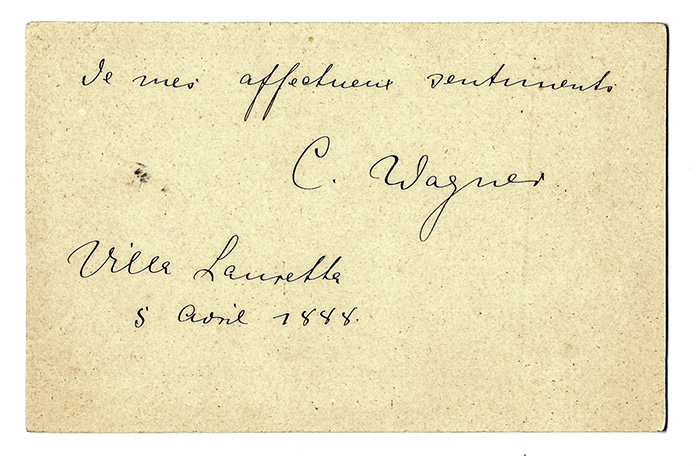 de mes affectueux sentiments
C. Wagner
Villa Lauretta
5 avril 1888.